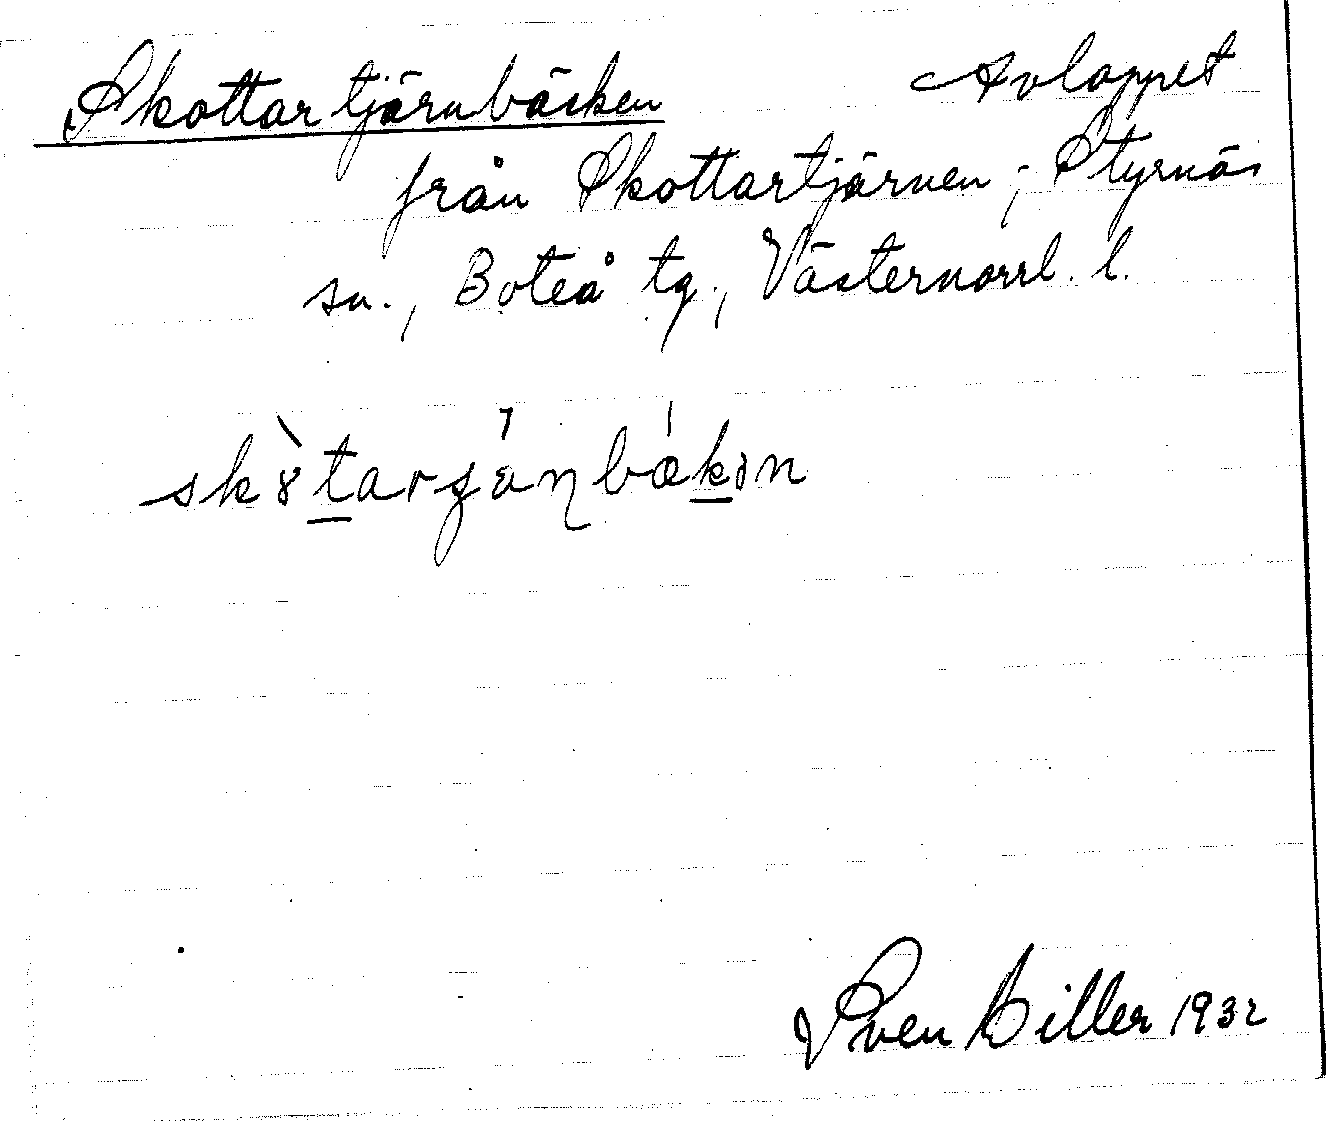 Skottartjärnbäcken Avloppet
från Skottartjärnen; Styrnäs
sn., Boteå tg., Västernorrl. l.
Sven Hiller 1932